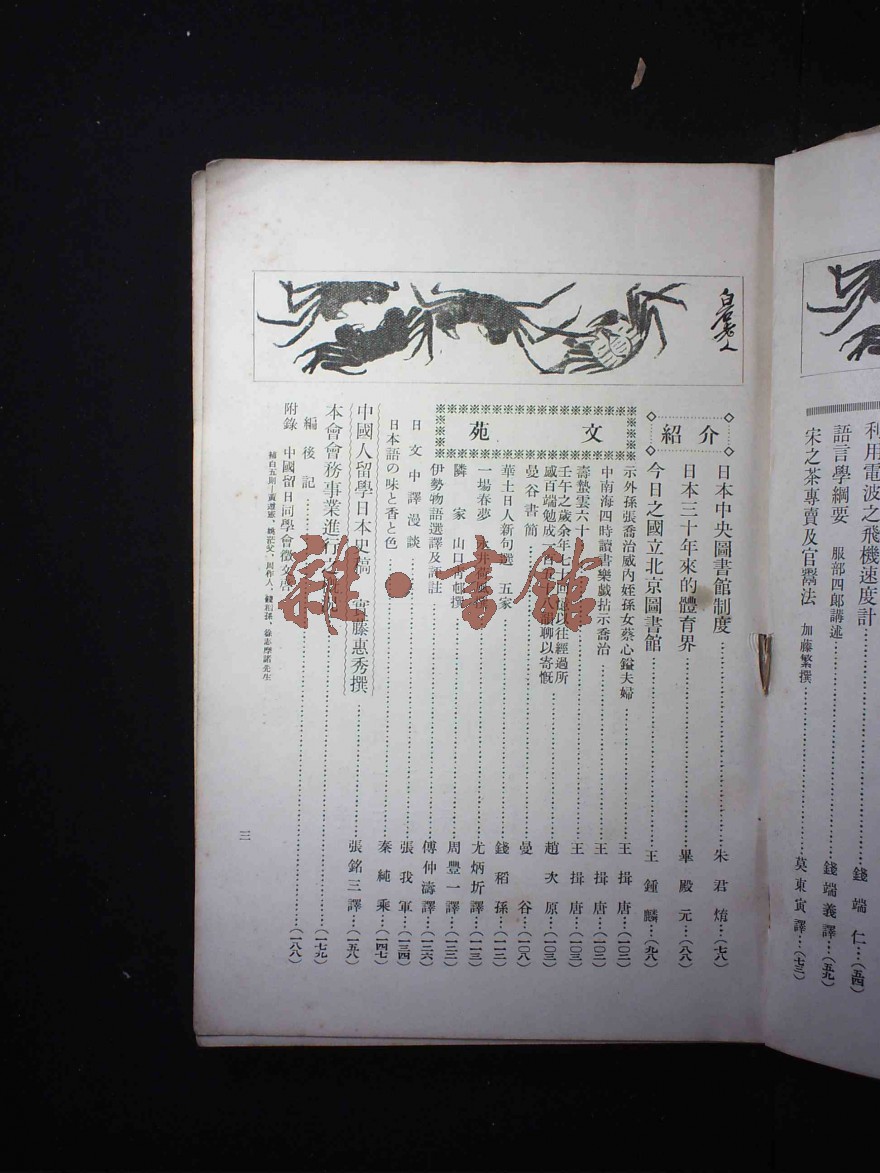 利用電波之飛機速度計……錢端仁…(五四)
語言學綱要 服部四郎講述……錢端義譯…(五九)
宋之茶專賣及官鬻法 加藤繁撰……莫東寅譯…(七三)
白石老人
紹介
日本中央圖書館制度……朱君焴…(七八)
日本三十年來的體育界……畢殿元…(八八)
今日之國立北京圖書館……王鍾麟…(九八)
文苑
示外孫張喬治威內姪孫女蔡心鎰夫婦……王揖唐…(一〇二)
中南海四時讀書樂戲拈示喬治……王揖唐…(一〇三)
壽蟄雲六十……王揖唐…(一〇三)
壬午之歲余年七十回憶以往經過所
感百端勉成一百 十八韻聊以寄慨……趙次原…(一〇三)
曼谷書簡……曼谷…(一〇八)
華土日人新句選 五家……錢稻孫…(一一二)
一場春夢 永井荷風撰……尤炳圻譯…(一一三)
隣家 山口 撰……周豐一譯…(一二二)
伊勢物語選譯及 註……傅仲濤譯…(一二六)
日文中譯漫談……張我軍…(一三四)
日本語の味と香と色……秦純乘…(一四七)
中國人留學日本史稿 實藤惠秀撰……張銘三譯…(一五八)
本會會務事業進行 況……(一七九)
編後記
附錄 中國留日同學會徵文啓……(一八八)
補白五則—黃遵憲、姚茫父、周作人、錢稻孫、徐志摩諸先生
三
雜·書館